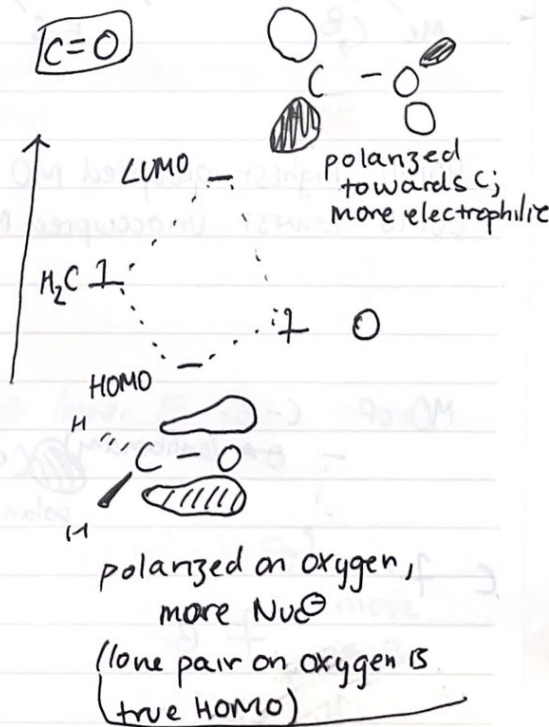 C=O
C - O
LUMO
polarized
towards C;
more electrophilic
H₂C
O
HOMO
H
C - O
H
polarized on oxygen,
more Nuc⊖
(lone pair on oxygen is
true HOMO)